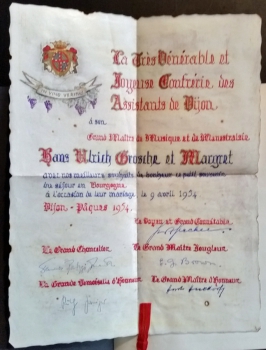 La Très Vénérable et
Joyeuse Confrérie des
Assistants de Dijon.
à son
Grand Maître de Musique et de Menestralie
Hans Ulrich Grosche et Margret
avec nos meilleurs souhaits de bonheur ce petit souvenir
du séjour en Bourgogne
à l'occasion de leur mariage, le 9 avril 1954.
Dijon - Pâques 1954.
Le Doyen et Grand Connétable
Le Grand Chancelier
Le Grand Maître Jongleur
La Grande Demoiselle d'Honneur
Le Grand Maître d'Honneur